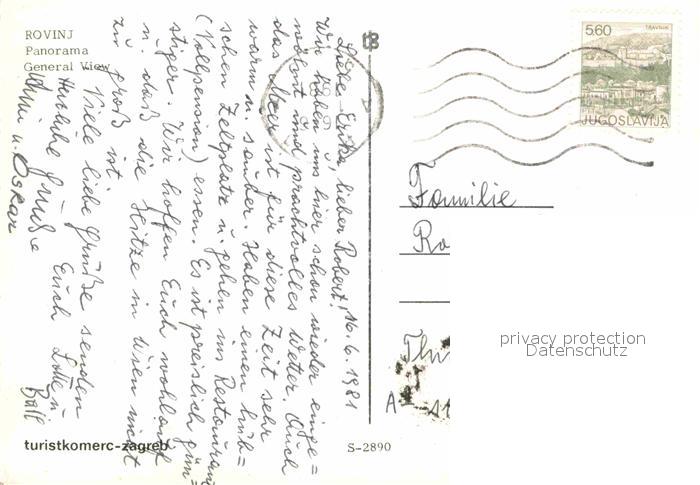 ROVINJ
Panorama
General View
16.6.1981
Liebe Erika, lieber Robert!
Wir haben uns hier schon wieder einge=
wöhnt und prachtvolles Wetter. Auch
das Meer ist für diese Zeit sehr
warm u. sauber. Haben einen hüb=
schen Zeltplatz u. gehen ins Restaurant
(Vollpension) essen. Es ist preislich gün=
stiger. Wir hoffen Euch wohlauf
u. daß die Hitze in Wien nicht
zu groß ist.
Viele liebe Grüße senden
Euch Lotte u
Herzliche Grüße
u. Oskar
turistkomerc-zagreb
S-2890
5.60
TRAVNIK
JUGOSLAVIJA
Familie
Ro
A-
privacy protection
Datenschutz